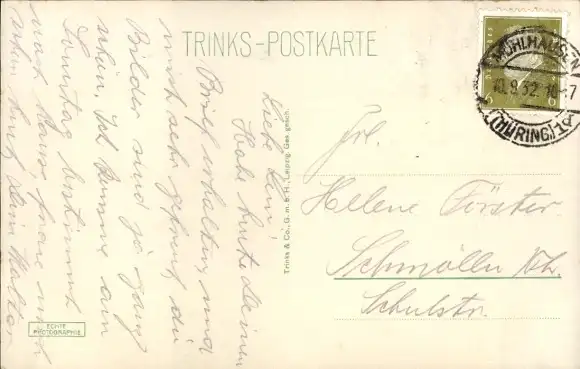 TRINKS-POSTKARTE
MÜHLHAUSEN
10.9.32.
(THÜRING)
6 6
Liebe Leni!
Habe heute Deinen
Brief erhalten und
mich sehr gefreut, die
Bilder sind ja ganz
schön. Ich komme am
Sonntag bestimmt
nach Hause freue mich
schon. Dein Walter
Trinks & Co., G. m. b. H., Leipzig. Ges. gesch.
Frl.
Helene Förster
Schmölln Th.
Schulstr.
ECHTE
PHOTOGRAPHIE